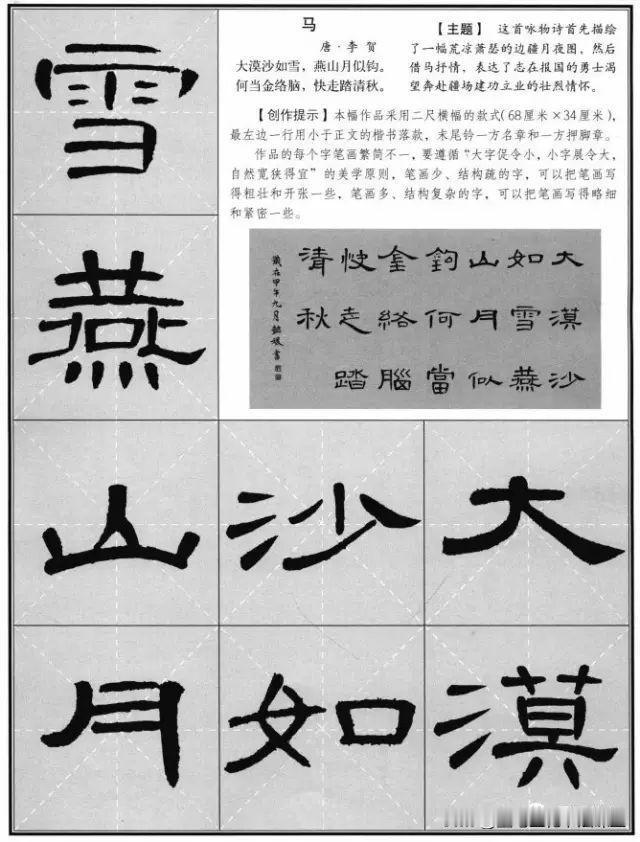 马
唐·李 贺
大漠沙如雪，燕山月似钩。
何当金络脑，快走踏清秋。
【主题】 这首咏物诗首先描绘
了一幅荒凉萧瑟的边疆月夜图，然后
借马抒情，表达了志在报国的勇士渴
望奔赴疆场建功立业的壮烈情怀。
【创作提示】本幅作品采用二尺横幅的款式(68厘米×34厘米)，
最左边一行用小于正文的楷书落款，末尾钤一方名章和一方押脚章。
作品的每个字笔画繁简不一，要遵循“大字促令小，小字展令大，
自然宽狭得宜”的美学原则，笔画少、结构疏的字，可以把笔画写
得粗壮和开张一些，笔画多、结构复杂的字，可以把笔画写得略细
和紧密一些。
大漠沙
如雪燕
山月似
鉤何當
金絡腦
快走踏
清秋
歲在甲午九月懿媛書
大漠
沙如
雪燕山月